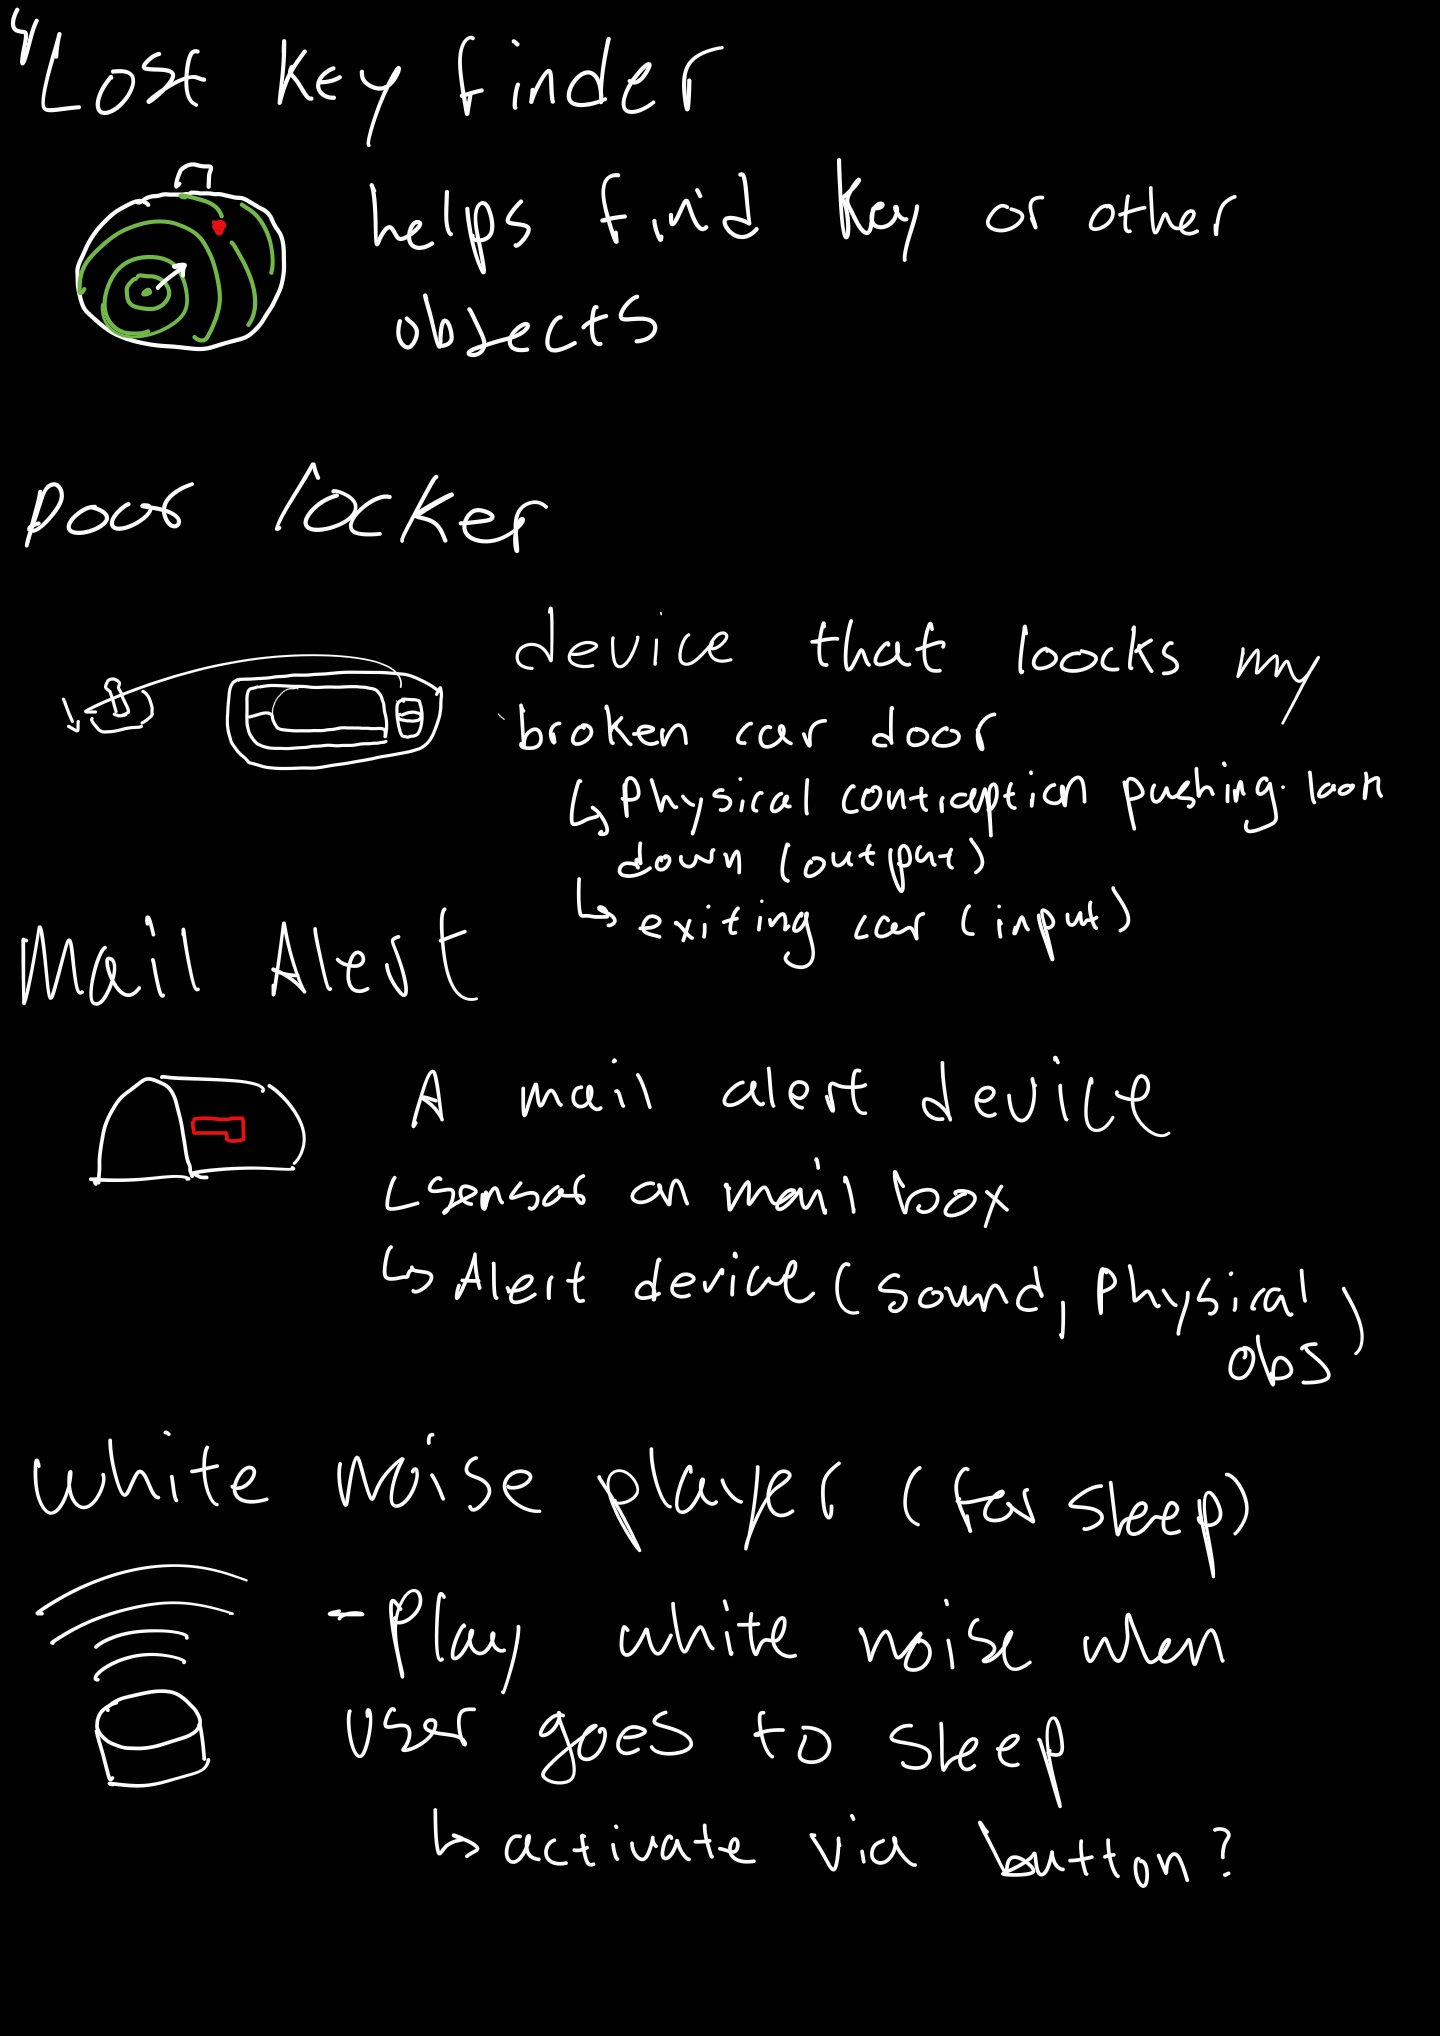 4
Lost Key finder
helps find key or other
objects
Door locker
device that loocks my
broken car door
↳ Physical contraption pushing look
down (output)
↳ exiting car (input)
Mail Alert
A mail alert device
↳ sensor on mail box
↳ Alert device (sound, Physical
obj)
white noise player (for sleep)
- Play white noise when
user goes to sleep
↳ activate via button?